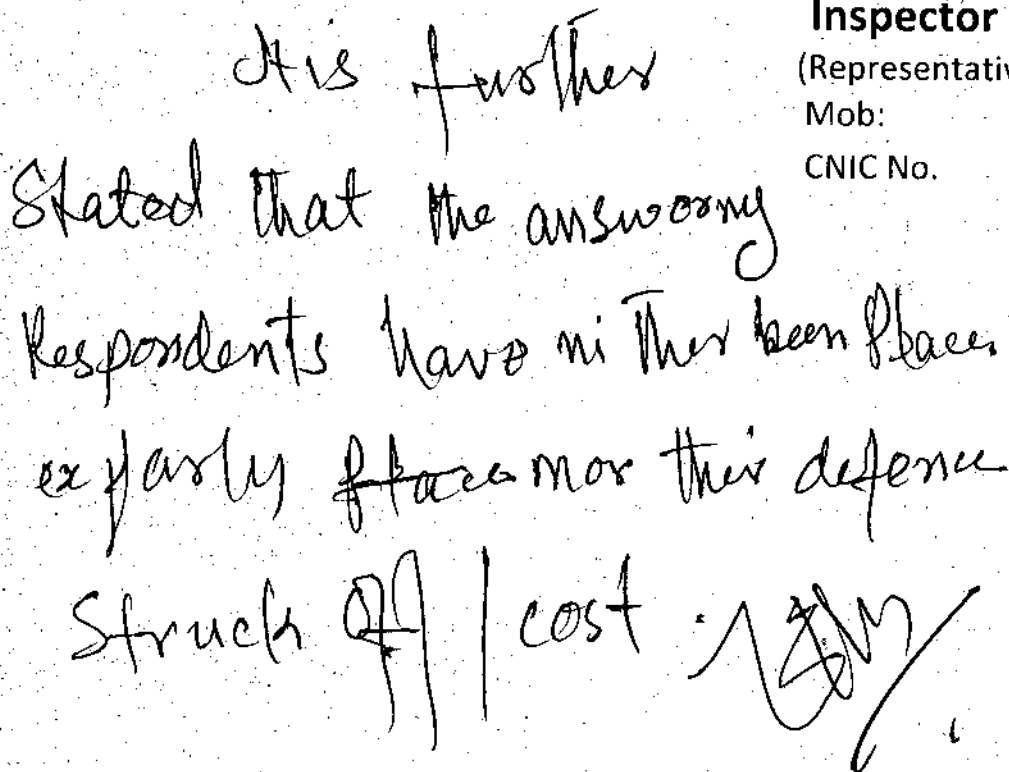 Inspector
(Representativ
Mob:
CNIC No.
It is further
Stated that the answering
Respondents have nither been Place
exparly place nor their defence
Struck off / cost.